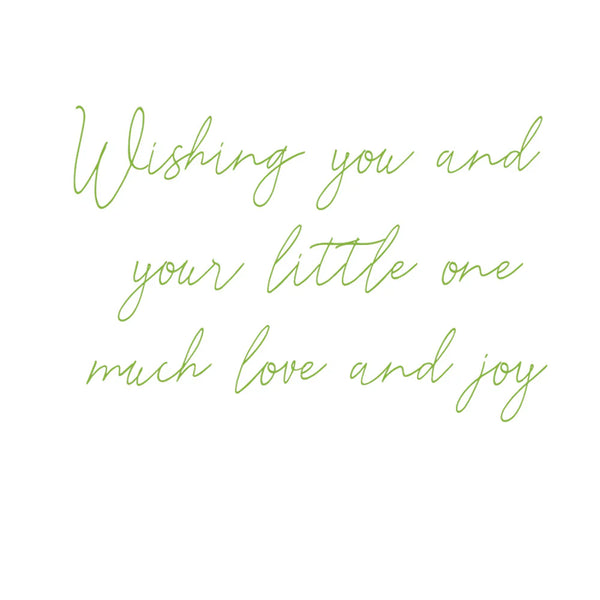 Wishing you and
your little one
much love and joy